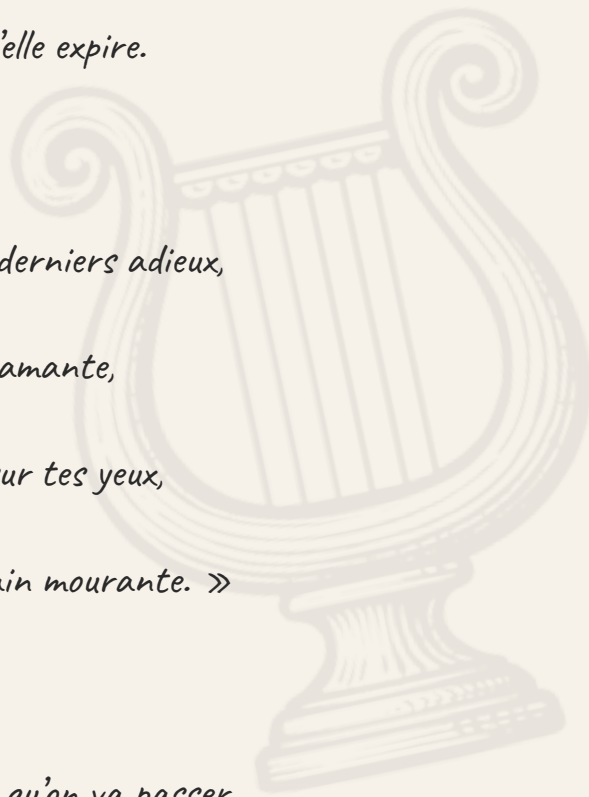 ’elle expire.
derniers adieux,
amante,
ur tes yeux,
in mourante. »
qu’on va passer